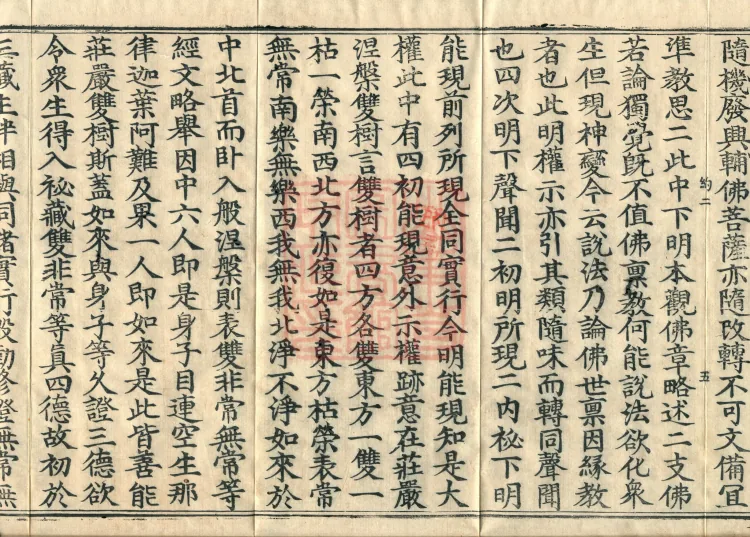 隨機發興輔佛菩薩亦隨改轉不可文備宜
準教思二此中下明本觀佛章略述二支佛
若論獨覺旣不值佛稟教何能說法欲化衆
生但現神變今云說法乃論佛世稟因緣教
者也此明權示亦引其類隨味而轉同聲聞
也四次明下聲聞二初明所現二内祕下明
能現前列所現全同實行今明能現知是大
權此中有四初能現意外示權跡意在莊嚴
涅槃雙樹言雙樹者四方各雙東方一雙一
枯一榮南西北方亦復如是東方枯榮表常
無常南樂無樂西我無我北淨不淨如來於
中北首而卧入般涅槃則表雙非常無常等
經文略舉因中六人即是身子目連空生那
律迦葉阿難及果一人即如來是此皆善能
莊嚴雙樹斯蓋如來與身子等久證三德欲
令衆生得入祕藏雙非常等真四德故初於
三藏生半相與同諸實行殷勤修證無常無
約二
五